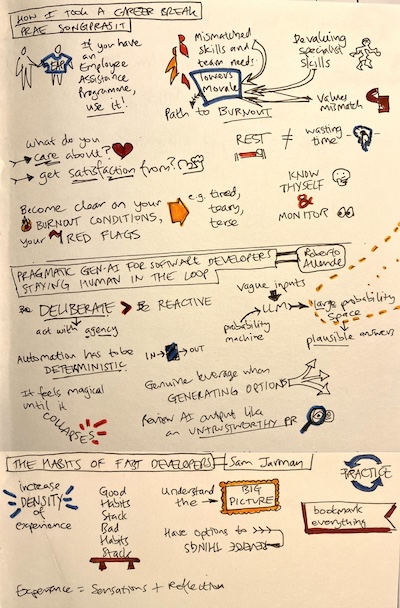 HOW I TOOK A CAREER BREAK
PRAE SONGPRASIT
EAP
If you have
an
Employee
Assistance
Programme,
use it!
Mismatched
skills and
team needs
Devaluing
specialist
skills
lowers
Morale
Path to BURNOUT
Values
mismatch
What do you
care about?
get satisfaction from?
REST ≠ wasting
time
Become clear on your
BURNOUT CONDITIONS,
your RED FLAGS
e.g. tired,
teary,
terse
KNOW
THYSELF
&
MONITOR
PRAGMATIC GEN-AI FOR SOFTWARE DEVELOPERS
STAYING HUMAN IN THE LOOP
Roberto
Allende
Be DELIBERATE > Be REACTIVE
act with agency
Vague inputs
LLM
probability
machine
large probability
space
plausible answers
Automation has to be
DETERMINISTIC
IN → OUT
It feels magical
until it
COLLAPSES
Genuine leverage when
GENERATING OPTIONS
Review AI output like
an UNTRUSTWORTHY PR
THE HABITS OF FAST DEVELOPERS
Sam Jarman
increase
DENSITY
of
experience
Good
Habits
Stack
Bad
Habits
Stack
Understand
the
BIG
PICTURE
Have options to
REVERSE THINGS
PRACTICE
bookmark
everything
Experience = Sensations + Reflection